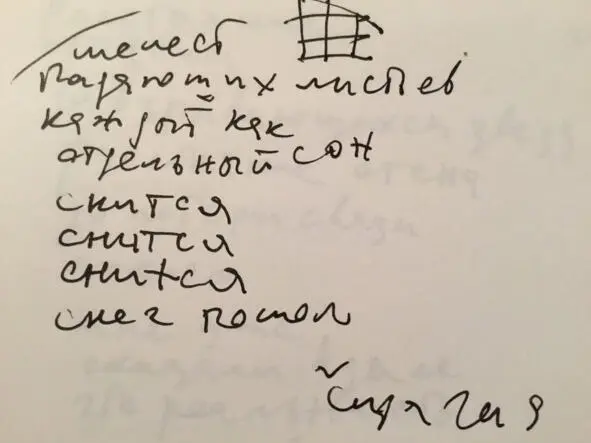 шелест
падающих листьев
каждый как
отдельный сон
снится
снится
снится
снег пошел